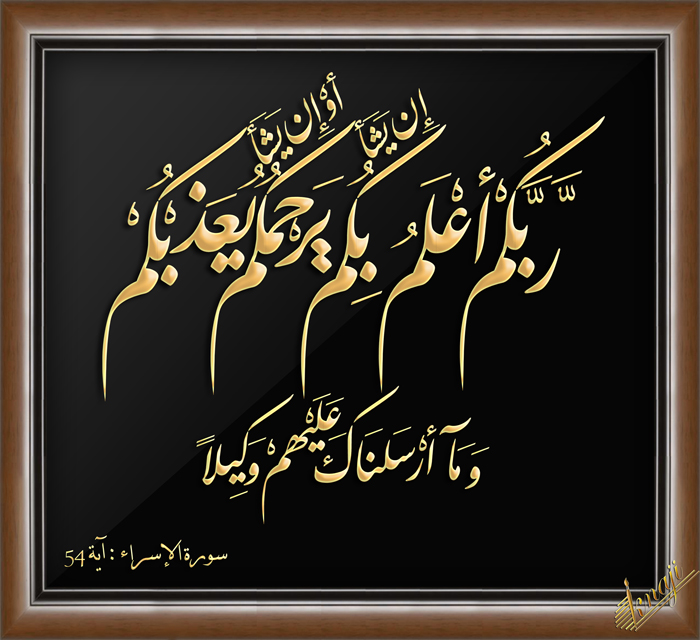 رَّبُّكُمْ أَعْلَمُ بِكُمْ إِن يَشَأْ يَرْحَمْكُمْ أَوْ إِن يَشَأْ يُعَذِّبْكُمْ
وَمَآ أَرْسَلْنَاكَ عَلَيْهِمْ وَكِيلاً
سورة الإسراء : آية 54
Isnaji